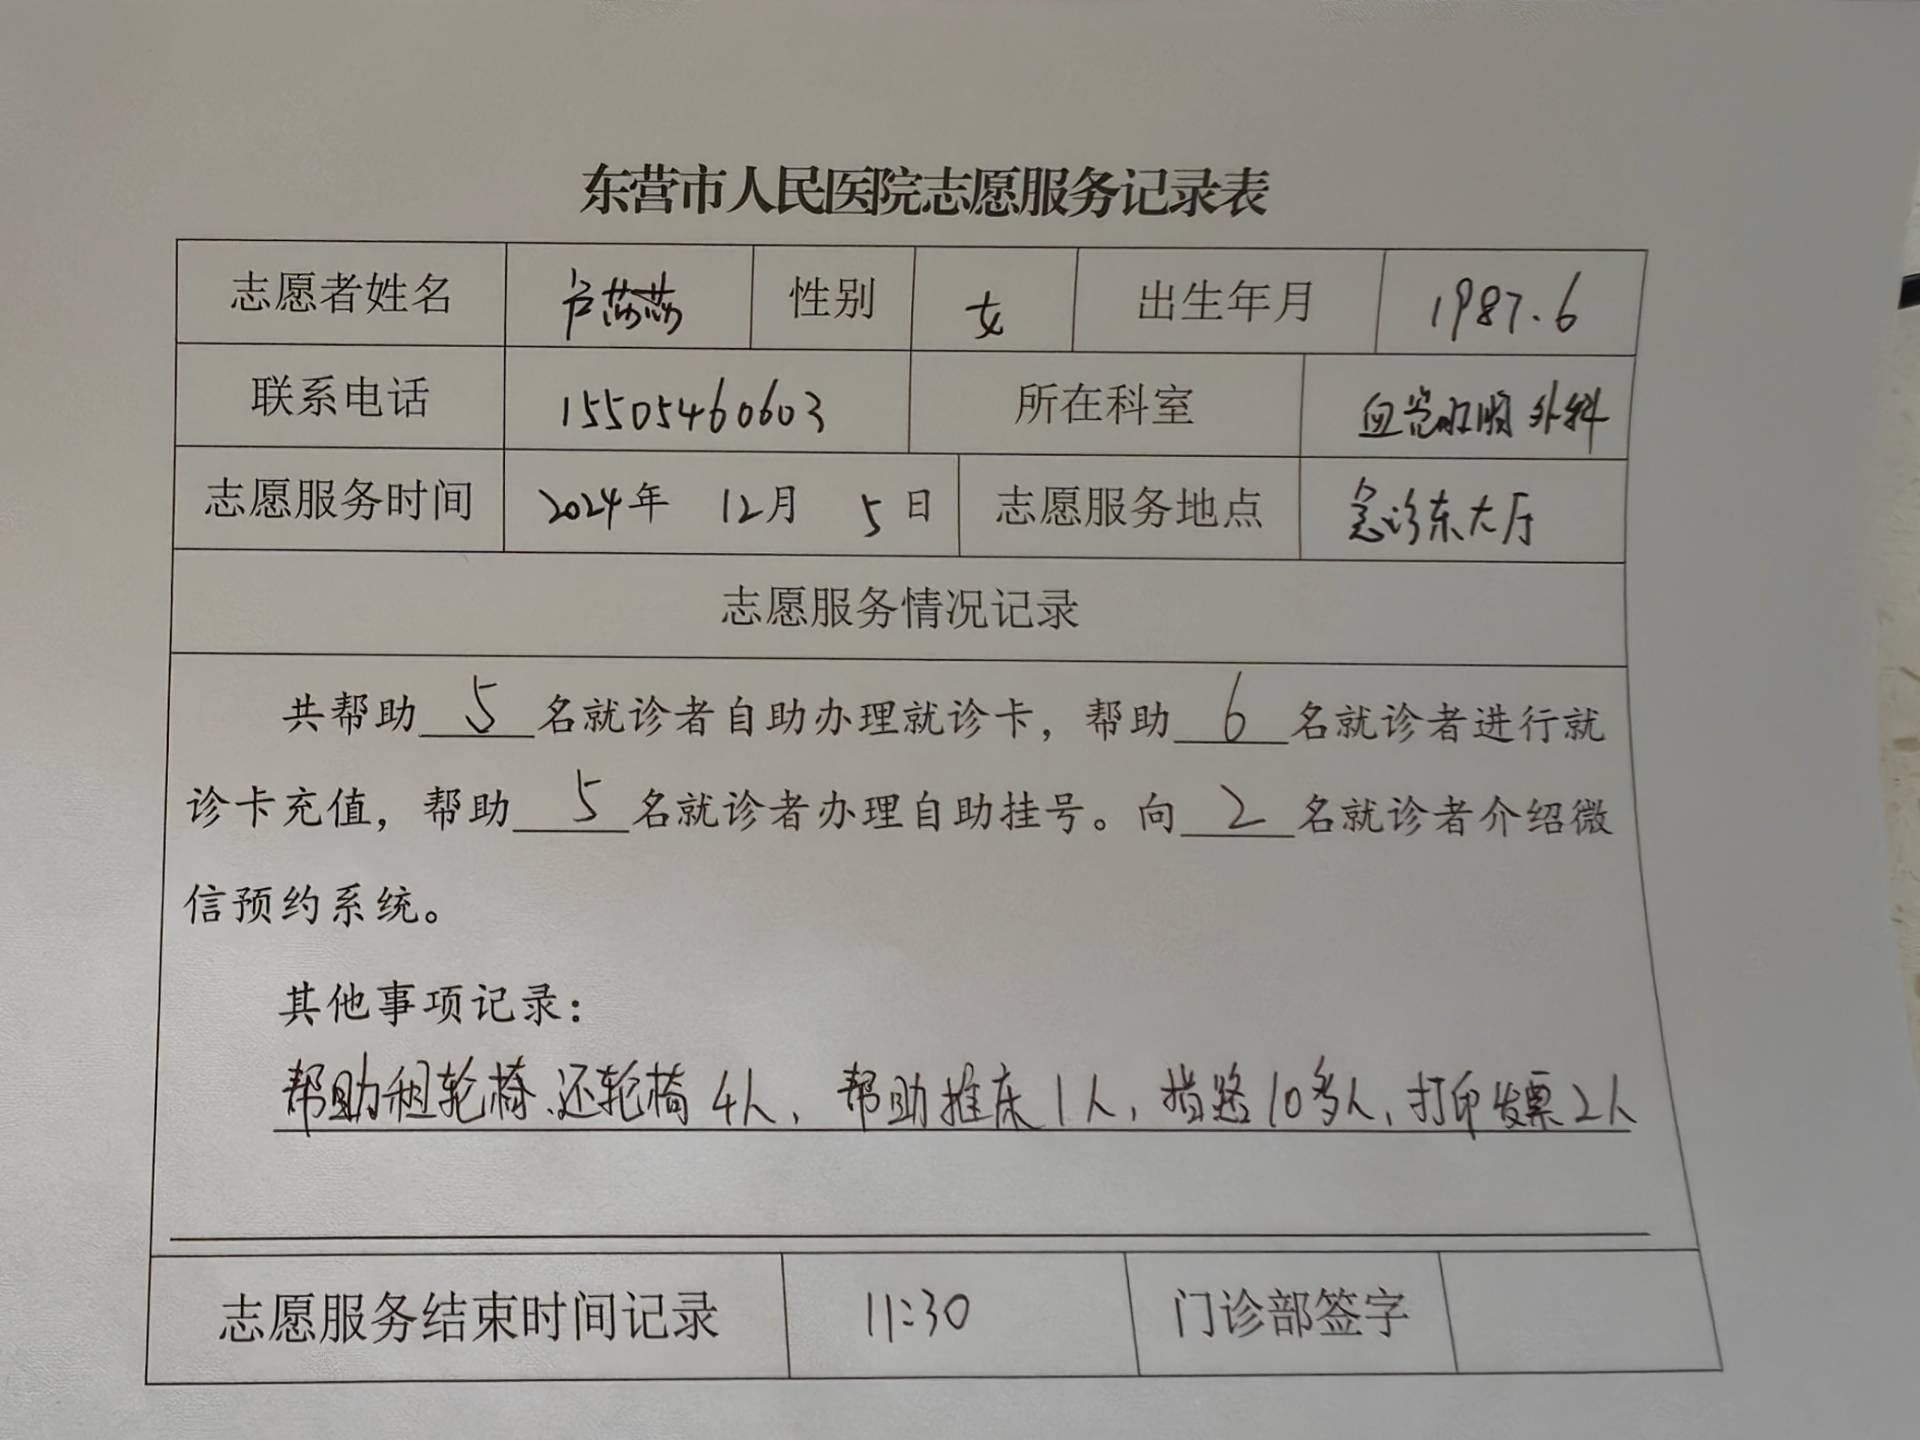 东营市人民医院志愿服务记录表
志愿者姓名 卢莎莎 性别 女 出生年月 1987.6
联系电话 15505460603 所在科室 血管胸外科
志愿服务时间 2024年 12月 5日 志愿服务地点 急诊东大厅
志愿服务情况记录
共帮助 5 名就诊者自助办理就诊卡，帮助 6 名就诊者进行就
诊卡充值，帮助 5 名就诊者办理自助挂号。向 2 名就诊者介绍微
信预约系统。
其他事项记录：
帮助租轮椅、还轮椅4人，帮助推床1人，指路10多人，打印发票2人
志愿服务结束时间记录 11:30 门诊部签字